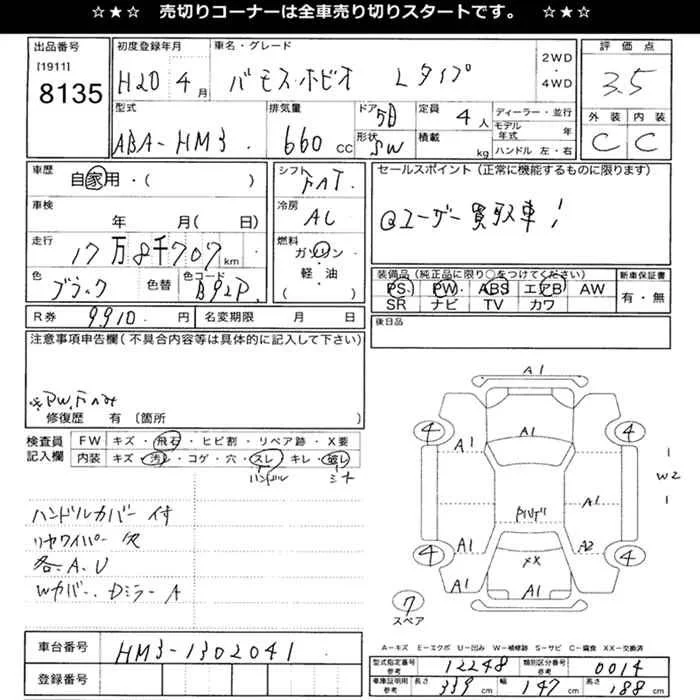 ☆★☆ 売切りコーナーは全車売り切りスタートです。 ☆★☆
出品番号 [1911] 8135
初度登録年月 H20 4月
車名・グレード バモスホビオ Lタイプ
2WD・4WD
評価点 3.5
型式 ABA-HM3
排気量 660 CC
ドア 5D
形状 SW
定員 4人
積載 kg
ディーラー・並行
モデル年式 年
ハンドル 左・右
外装 内装
C C
車歴 自家用・( )
シフト FAT
セールスポイント (正常に機能するものに限ります)
@ユーザー買取車!
車検 年 月( 日)
冷房 AC
走行 17万8千707km
燃料 ガソリン・軽油 ( )
色 ブラック 色替 色コード B92P
装備品 (純正品に限り○をつけてください) 新車保証書
PS PW ABS エアB AW 有・無
SR ナビ TV カワ
R券 9910円 名変期限 月 日
後日品
注意事項申告欄 (不具合内容等は具体的に記入して下さい)
修復歴 有 (箇所 )
検査員記入欄 FW キズ・飛石・ヒビ割・リペア跡・X要
内装 キズ・汚れ・コゲ・穴・スレ・キレ・破れ
ハンドル シート
ハンドルカバー付
リヤワイパー欠
各A.U
Wカバー.Dミラー A
A1
4 A1 A1 4
1
W2
1
A1
4 A1 A2 4
XX
A1 A1
7
スペア
A1
A=キズ E=エクボ U=凹み W=補修跡 S=サビ C=腐食 XX=交換済
車台番号 HM3-1302041
登録番号
型式指定番号 参考 12248 類別区分番号 参考 0014
車庫証明用 参考 長さ 339cm 幅 147cm 高さ 188cm